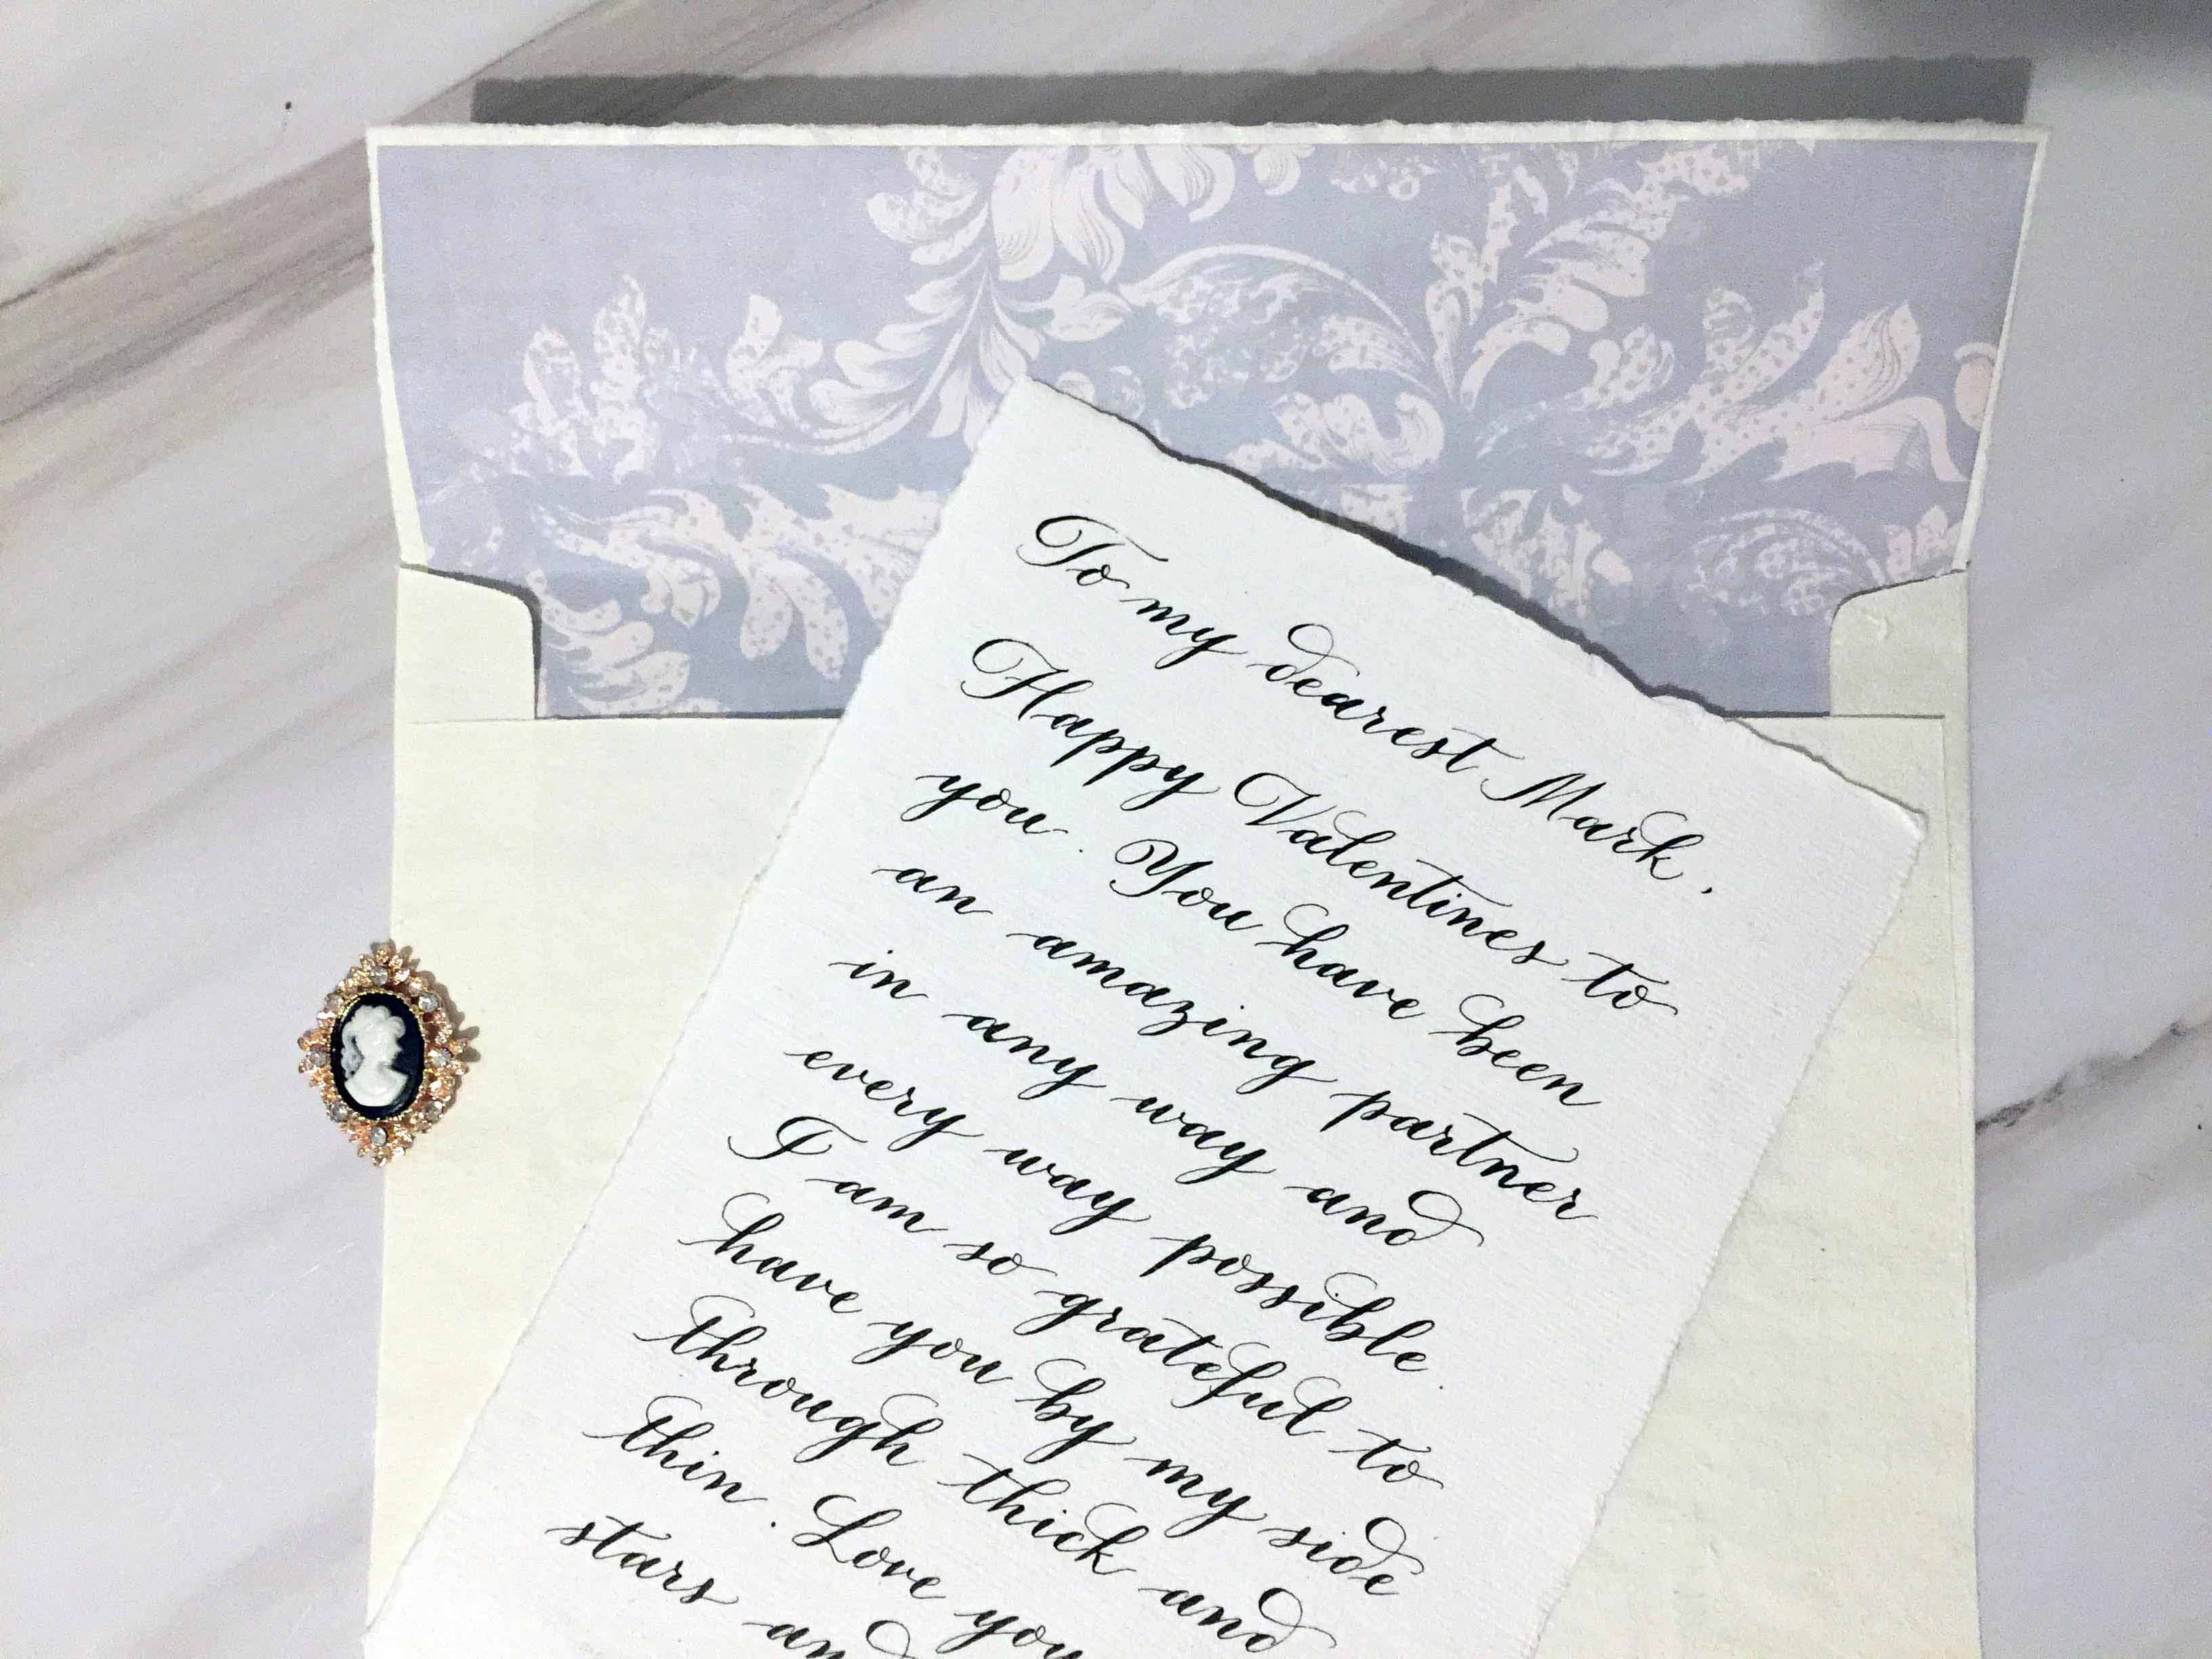 To my dearest Mark,
Happy Valentines to
you. You have been
an amazing partner
in any way and
every way possible.
I am so grateful to
have you by my side
through thick and
thin. Love you
stars and